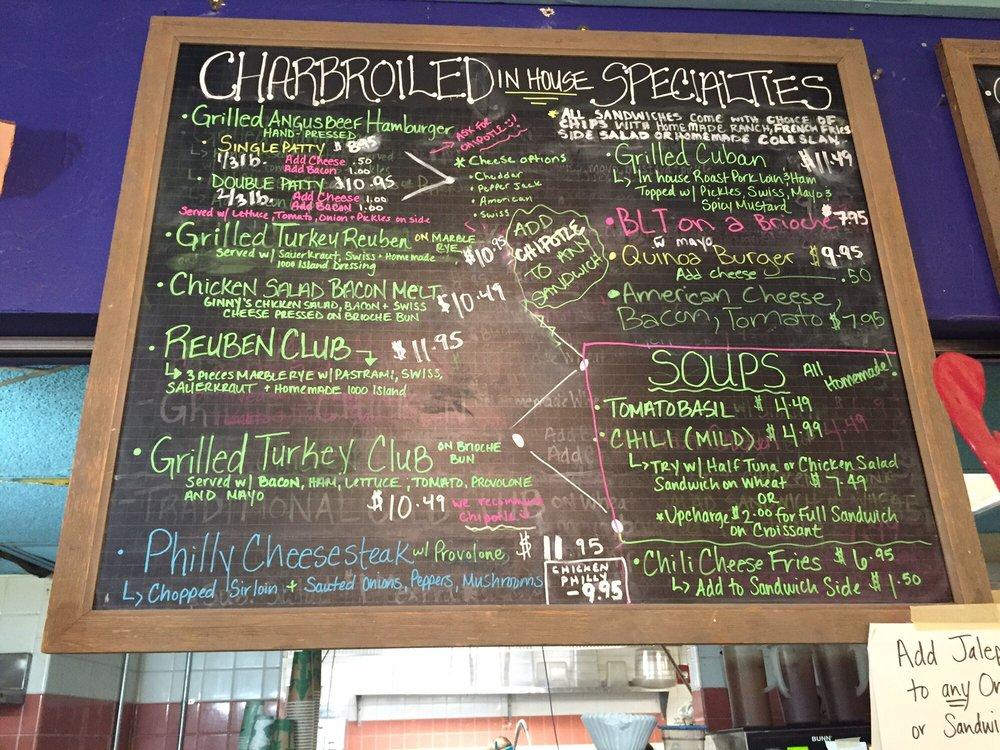 CHARBROILED IN HOUSE SPECIALTIES
• Grilled Angus Beef Hamburger
HAND-PRESSED
• SINGLE PATTY $ 8.95
1/3 lb. Add Cheese .50
Add Bacon 1.00
• DOUBLE PATTY $10.95
2/3 lb. Add Cheese 1.00
Add Bacon 1.00
Served w/ Lettuce, Tomato, Onion + Pickles on side
ASK FOR CHIPOTLE :)!
* Cheese options
• Cheddar
• Pepper Jack
• American
• Swiss
• Grilled Turkey Reuben ON MARBLE RYE $10.95
Served w/ Sauerkraut, Swiss + Homemade
1000 Island Dressing
• Chicken SALAD BACON MELT $10.49
GINNY'S CHICKEN SALAD, BACON + SWISS
CHEESE PRESSED ON BRIOCHE BUN
ADD
CHIPOTLE
TO ANY
SANDWICH
• REUBEN CLUB $11.95
3 PIECES MARBLE RYE W/ PASTRAMI, SWISS,
SAUERKRAUT + Homemade 1000 Island
• Grilled Turkey Club ON BRIOCHE BUN
Served w/ BACON, HAM, LETTUCE, TOMATO, PROVOLONE
AND MAYO
$10.49 we recommend
Chipotle
• Philly Cheesesteak w/ Provolone $11.95
Chopped Sirloin + Sauted Onions, Peppers, Mushrooms
CHICKEN
PHILLY
- 9.95
* ALL SANDWICHES COME WITH CHOICE OF
CHIPS WITH HOMEMADE RANCH, FRENCH FRIES
SIDE SALAD OR HOMEMADE COLESLAW
• Grilled Cuban $11.49
In house Roast Pork Loin + Ham
Topped w/ Pickles, Swiss, Mayo +
Spicy Mustard
• BLT on a Brioche $7.95
w mayo
• Quinoa Burger $9.95
Add cheese .50
• American Cheese,
Bacon, Tomato $7.95
SOUPS All Homemade!
• TOMATO BASIL $ 4.49
• CHILI (MILD) $4.99
TRY w/ Half Tuna or Chicken Salad
Sandwich on Wheat $7.49
OR
* Upcharge $2.00 for Full Sandwich
on Croissant
• Chili Cheese Fries $6.95
Add to Sandwich Side $1.50
Add
to any
or
BUNN